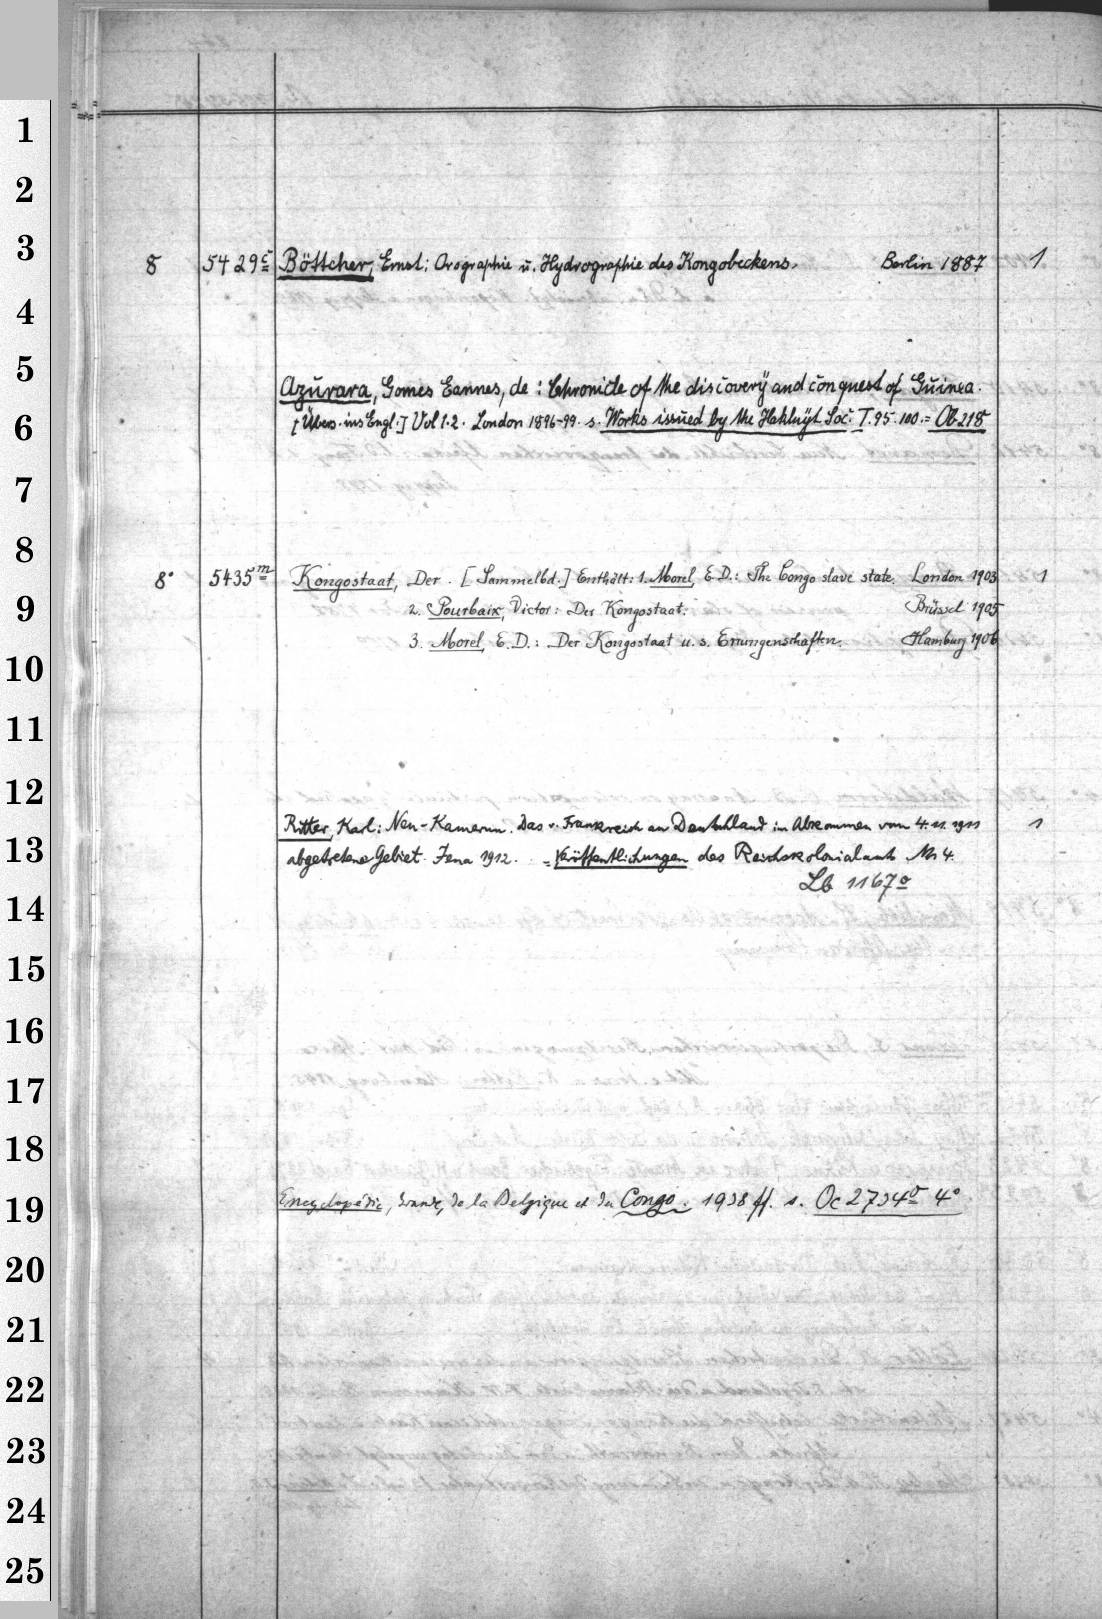 1
2
3
8 5429c Böttcher, Ernst: Orographie u. Hydrographie des Kongobeckens. Berlin 1887 1
4
5
Azurara, Gomes Eannes, de: Chronicle of the discovery and conquest of Guinea.
6
[Übers. ins Engl.] Vol 1.2. London 1896-99. s. Works issued by the Hakluyt Soc. T. 95. 100. = Ob 218
7
8
8° 5435m Kongostaat, Der. [Sammelbd.] Enthält: 1. Morel, E.D.: The Congo slave state. London 1903 1
9
2. Pourbaix, Victor: Der Kongostaat. Brüssel 1905
3. Morel, E.D.: Der Kongostaat u. s. Errungenschaften. Hamburg 1906
10
11
12
Ritter, Karl: Neu-Kamerun. Das v. Frankreich an Deutschland im Abkommen vom 4. 11. 1911 1
13
abgetretene Gebiet. Jena 1912. = Veröffentlichungen des Reichskolonialamts Nr 4.
Lb 1167o
14
15
16
17
18
19
Encyclopédie, Grande, de la Belgique et du Congo. 1938 ff. s. Oc 2734o 4°
20
21
22
23
24
25